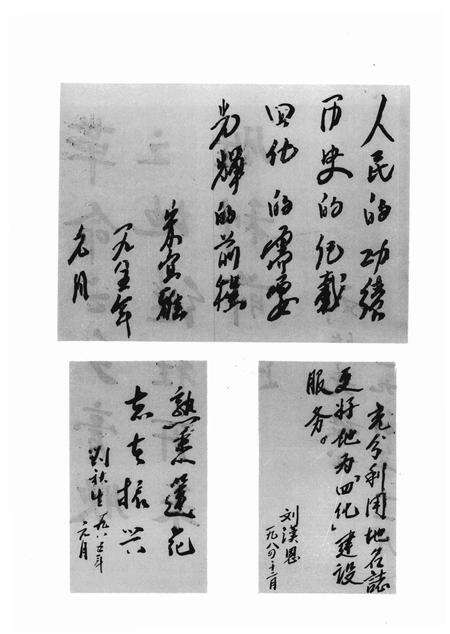 人民的功绩
历史的纪载
四化的需要
光辉的前程
一九八五年
元月
充分利用地名誌
更好地为“四化”建设
服务。
刘漢恩
一九八四.十二月
熟悉蓮花
志在振兴
劉秋生 一九八五年
元月